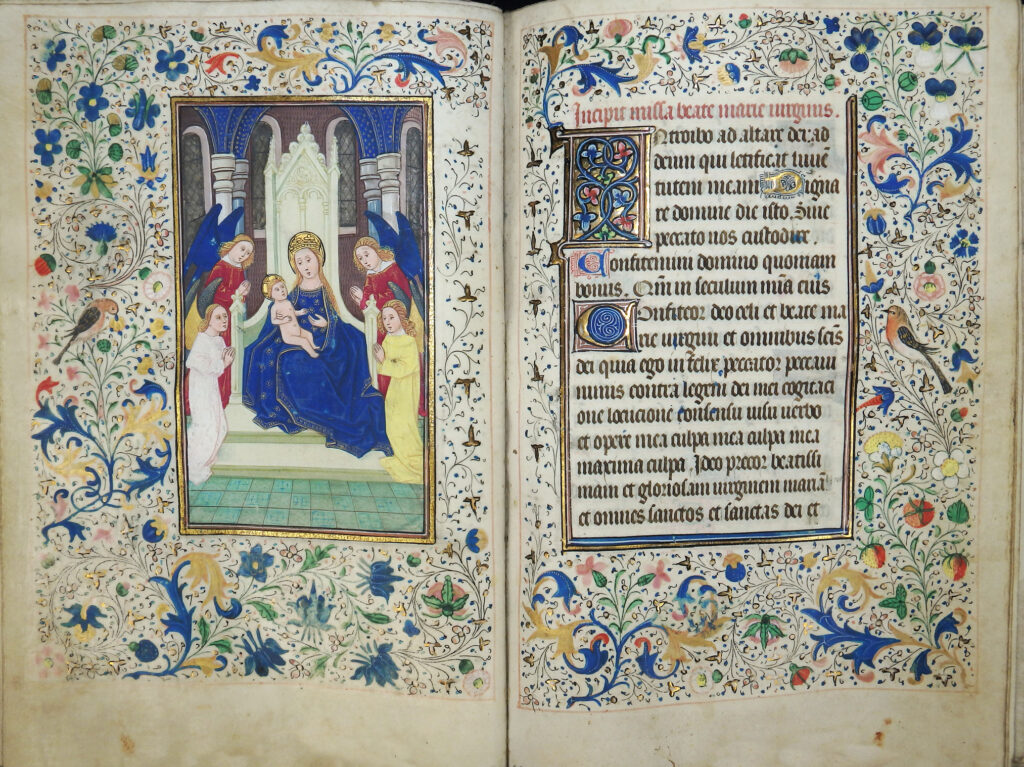 Incipit missa beate marie virginis.
Introibo ad altare dei ad
deum qui letificat iuuē
tutem meam Digna
re domine die isto. Sine
peccato nos custodire.
Confitemini domino quoniam
bonus. Qm̄ in seculum mīa eius
Confiteor deo celi et beate ma
rie virgini et omnibus scīs
dei quia ego infelix peccator peccaui
nimis contra legem dei mei cogitaci
one locucione consensu uisu uerbo
et opere mea culpa mea culpa mea
maxima culpa. Ideo precor beatissi
mam et gloriosam uirginem mariā
et omnes sanctos et sanctas dei et